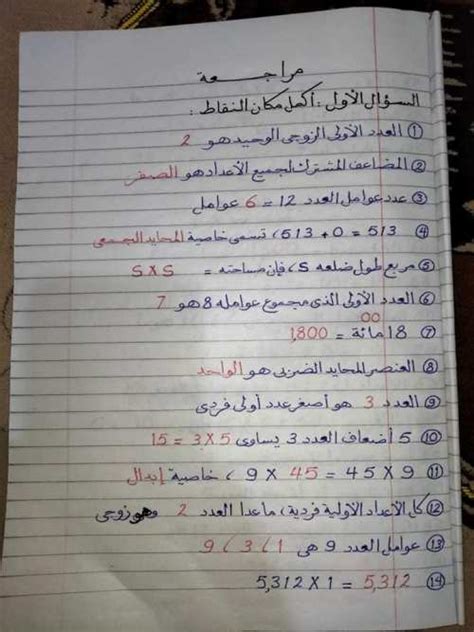 مراجعة
السؤال الأول : أكمل مكان النقاط :
① العدد الأولى الزوجى الوحيد هو 2
② المضاعف المشترك لجميع الأعداد هو الصفر
③ عدد عوامل العدد 12 = 6 عوامل
④ 513 = 0 + 513 ، تسمى خاصية المحايد الجمعى
⑤ مربع طول ضلعه S ، فإن مساحته = S × S
⑥ العدد الأولى الذى مجموع عوامله 8 هو 7
⑦ 18 مائة = 1,800
00
⑧ العنصر المحايد الضربى هو الواحد
⑨ العدد 3 هو أصغر عدد أولى فردى
⑩ 5 أضعاف العدد 3 يساوى 15 = 3 × 5
⑪ 9 × 45 = 45 × 9 ، خاصية إبدال
⑫ كل الأعداد الأولية فردية ، ما عدا العدد 2 وهو زوجى
⑬ عوامل العدد 9 هى 1 ، 3 ، 9
⑭ 5,312 × 1 = 5,312